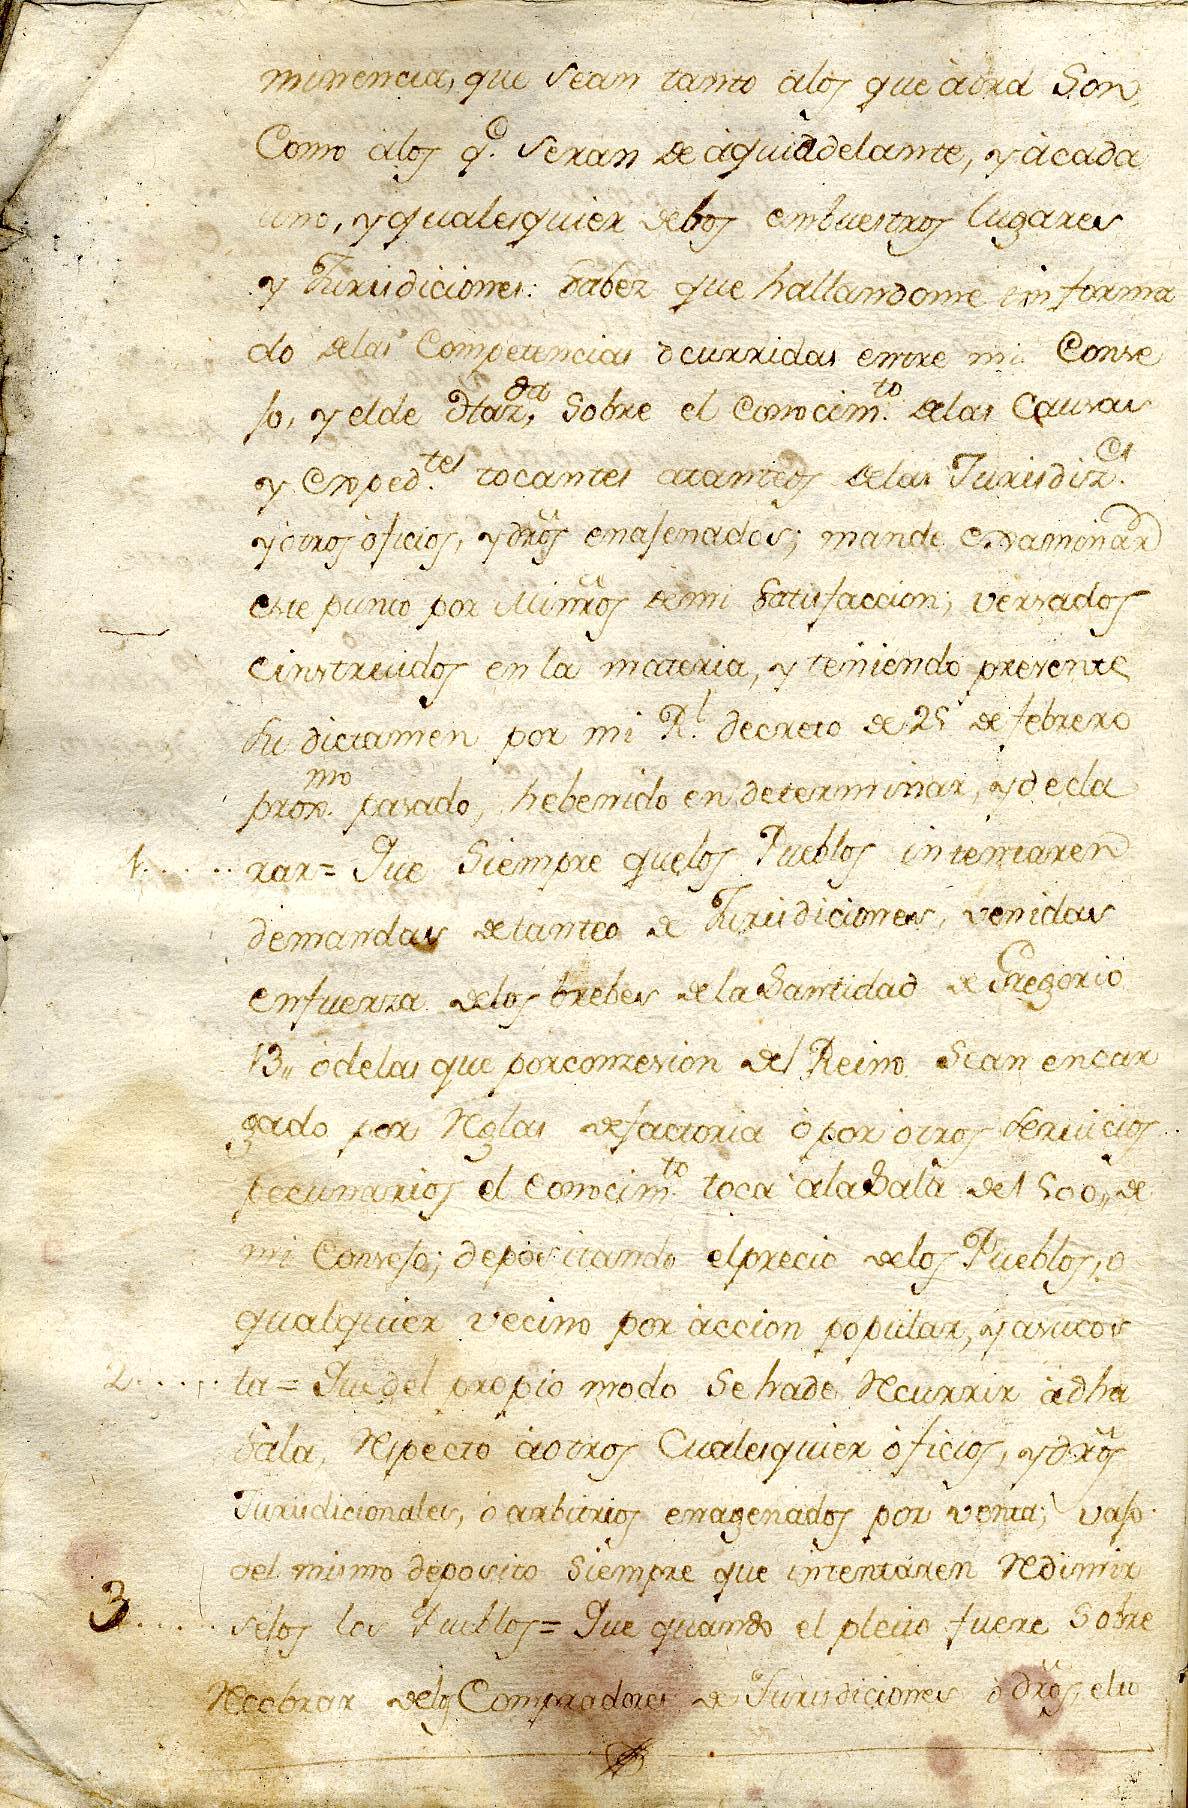 minencia, que sean tanto alos que àora Son,
Como alos q.e seràn de àquiadelante, y àcada
uno, y qualesquier debos embuestros lugares
y Jurisdiciones: Sabez que hallandome informa
do delas Competencias òcurridas entre mi Conse
jo, y elde Haz.da, Sobre el Conocim.to delas Causas
y Exped.tes tocantes atanteos delas Jurisdiz.es
yòtros òficios, ydr̃os enajenados; mande Examinar
este punto por Minr̃os demi Satisfaccion; versados
einstruidos en la materia, y teniendo presente
su dictamen por mi R.l decreto de 25 de febrero
prox.mo pasado, hebenido en determinar, ydecla
1..... rar= Que Siempre quelos Pueblos intentaren
demandas detanteo de Jurisdiciones, venidas
enfuerza delos brebes dela Santidad de Gregorio
13,, òdelas que porconzesion del Reino Sean encar
gado por Reglas defactoria ò por òtros servicios
pecuniarios el Conocim.to toca àlaSala de1500,, de
mi Consejo; depositando elprecio delos Pueblos, o
qualquier vecino por àccion popular, yasucos
2..... ta= Que del propio modo Sehade Recurrir àdha
Sala, Respecto àotros Cualesquier òficios, ydr̃os
Jurisdicionales, ò arbitrios enagenados por venta; vajo
del mismo deposito Siempre que intentàren Redimir
3..... selos los Pueblos= Que quando el pleito fuere Sobre
Recobrar delos Compradores de Jurisdiciones ò dr̃os, elu